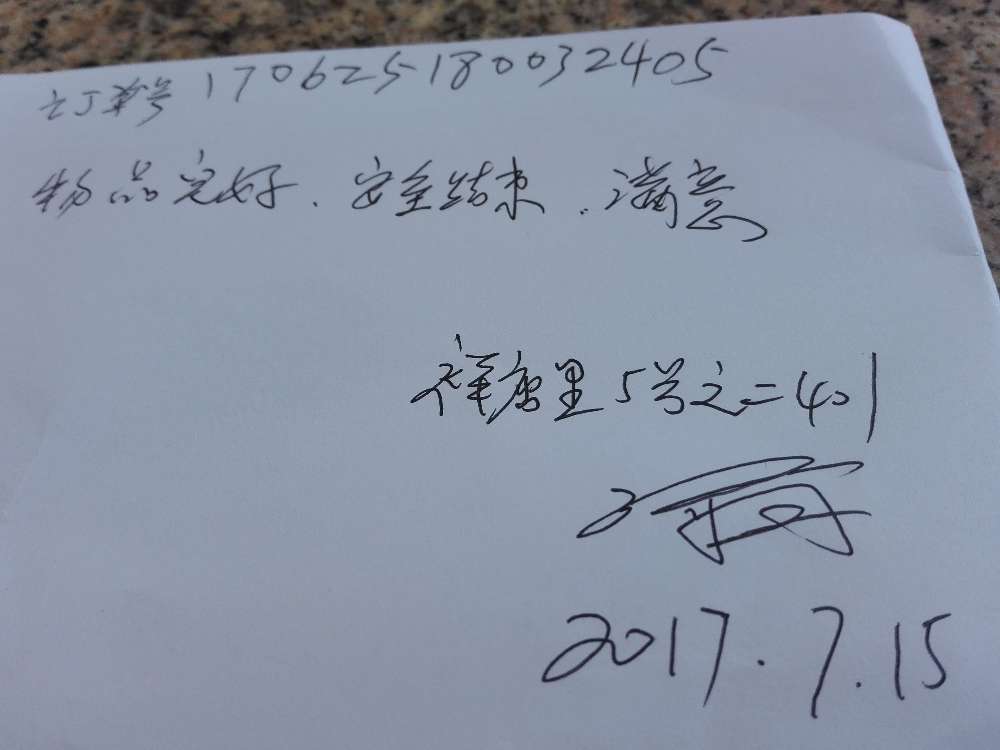 订单号 170625180032405
物品完好.安全结束.满意
祥康里5号之二401
2017.7.15